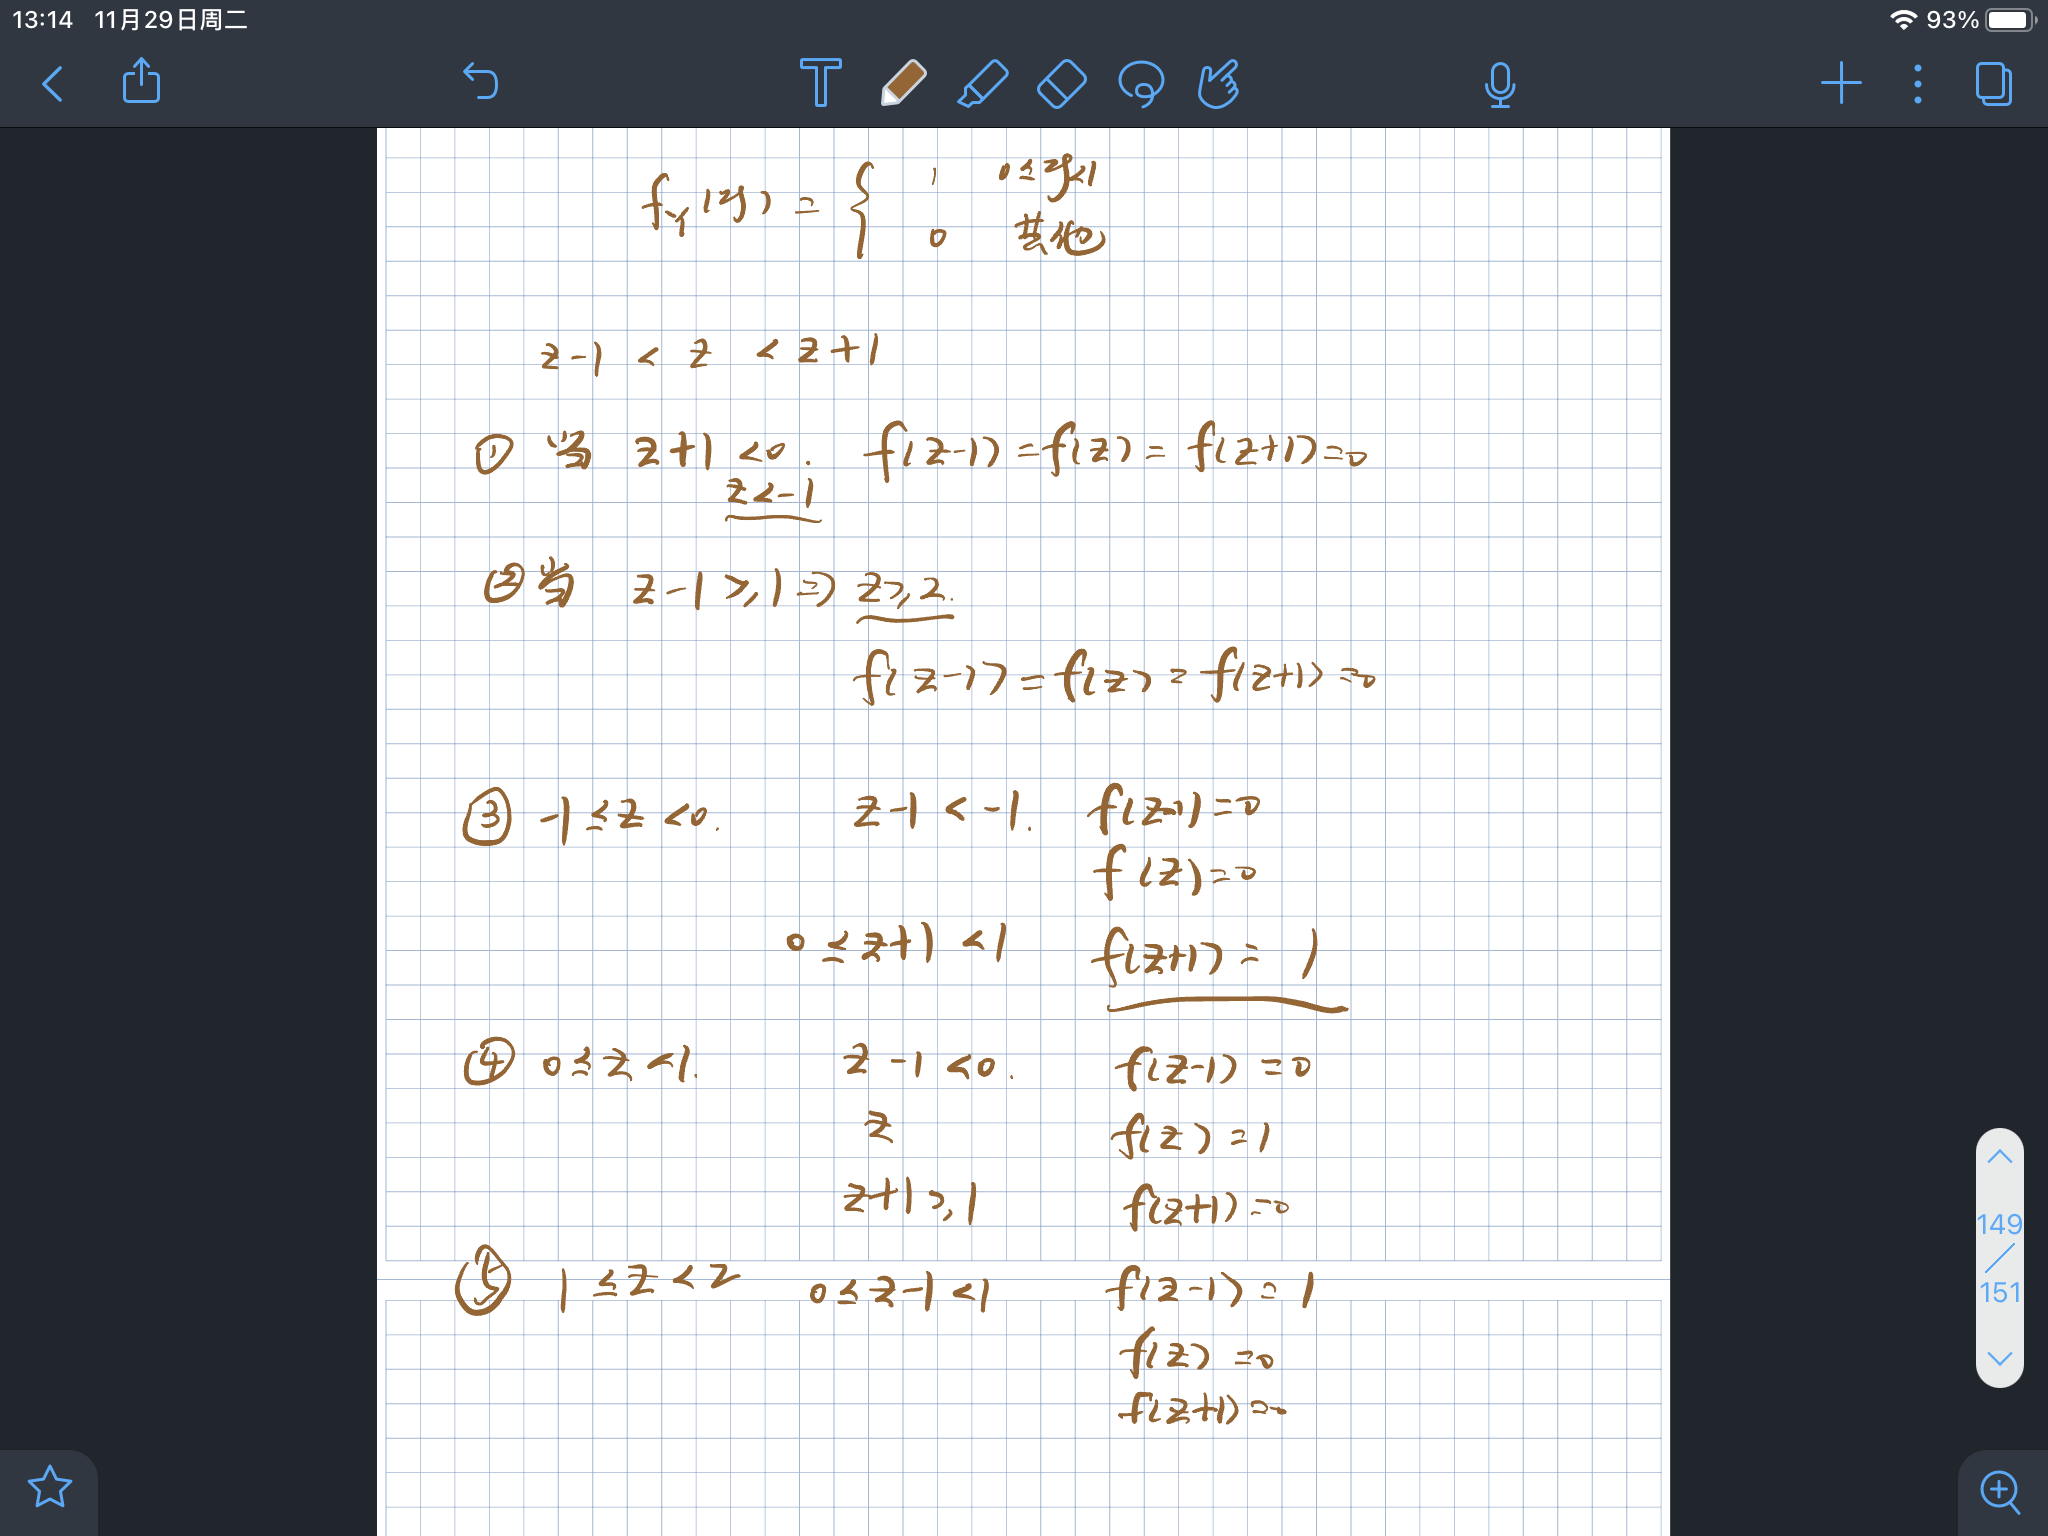 13:14 11月29日周二 93%
f_Y(y) = { 1 0≤y<1
0 其他
z-1 < z < z+1
① 当 z+1 <0. f(z-1) = f(z) = f(z+1)=0
z<-1
② 当 z-1≥1 ⇒ z≥2.
f(z-1) = f(z) = f(z+1) =0
③ -1≤z<0. z-1<-1. f(z-1)=0
f(z)=0
0≤z+1<1 f(z+1)= 1
④ 0≤z<1. z-1<0. f(z-1)=0
z f(z)=1
z+1≥1 f(z+1)=0
⑤ 1≤z<2 0≤z-1<1 f(z-1)=1
f(z)=0
f(z+1)=0
149
/
151